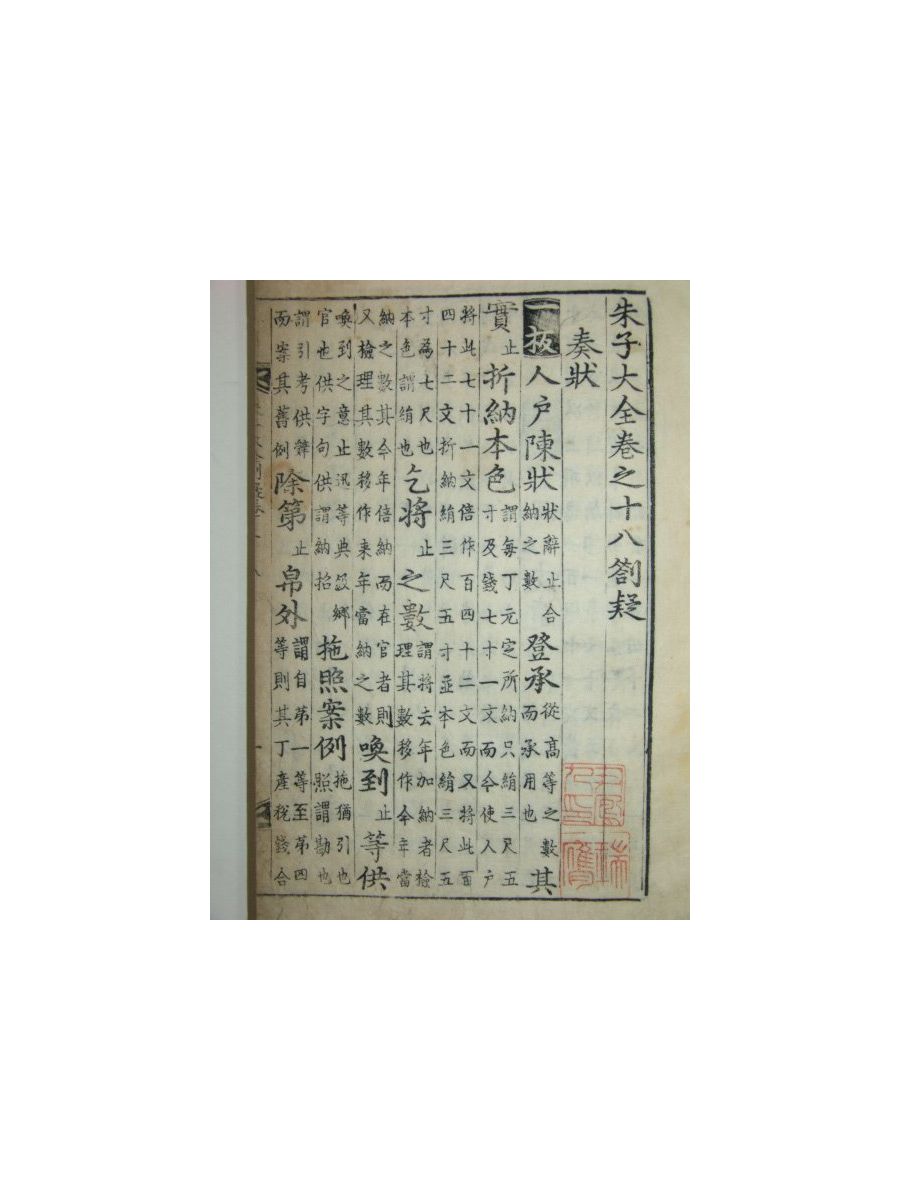 朱子大全卷之十八劄疑
奏狀
一板人戶陳狀狀辭止合納之數登承從高等之數而承用也其
實止折納本色謂每丁元定所納只絹三尺五寸及錢七十一文而今使人戶
將此七十一文倍作百四十二文而又將此百四十二文折納絹三尺五寸並本色絹三尺五
寸為七尺也本色謂絹也乞將止之數謂將去年加納者檢理其數移作今年當
納之數其今年倍納而在官者則又檢理其數移作来年當納之數喚到止等供
喚到之意止迅等典及鄉官也供字句供謂納招拖照案例拖猶引也照謂勘也
謂引考供辭而案其舊例除第止帛外謂自苐一等至苐四等則其丁產稅錢合